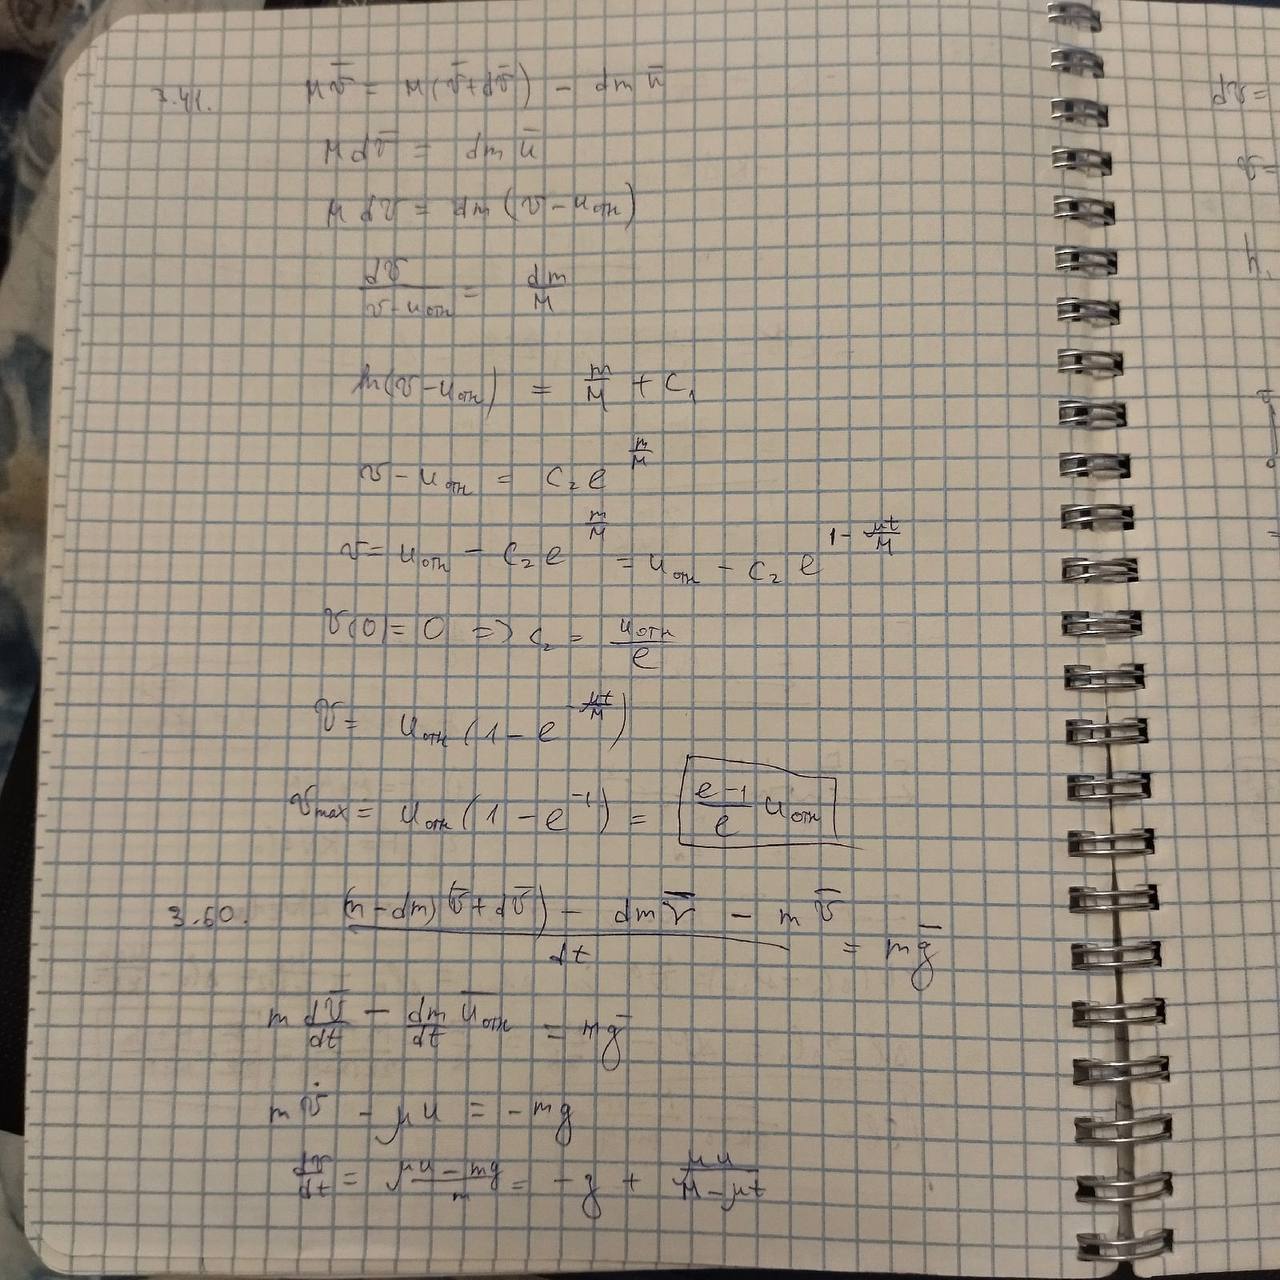 3.41. Mv̄ = M(v̄+dv̄) - dm ū
M dv̄ = dm ū
M dv = dm (v - uотн)
dv/(v - uотн) = dm/M
ln(v - uотн) = m/M + C₁
v - uотн = C₂ e^(m/M)
v = uотн - C₂ e^(m/M) = uотн - C₂ e^(1 - μt/M)
v(0) = 0 => C₂ = uотн/e
v = uотн (1 - e^(-μt/M))
vmax = uотн (1 - e⁻¹) = (e-1)/e uотн
3.60. ((m - dm)(v̄ + dv̄) - dm v̄ - m v̄)/dt = mḡ
m dv̄/dt - dm/dt ūотн = mḡ
m v̇ - μu = - mg
dv/dt = (μu - mg)/m = -g + μu/(M - μt)
dv =
v =